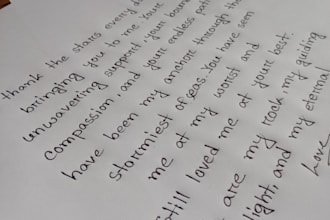 thank the stars every d
bringing you to me. Your
unwavering support, your boun
compassion, and your endless pati
have been my anchor through the
stormiest of seas. You have seen
me at my worst and
still loved me at your best.
are my rock, my guiding
light, and my eternal
Love